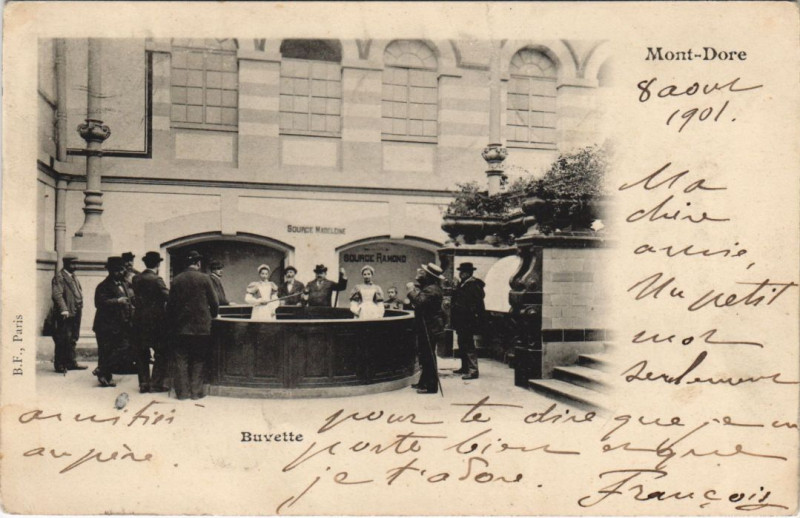 Mont-Dore
8 aout
1901.
Ma
chère
amie,
Un petit
mot
seulement
pour te dire que je m
porte bien et que
je t'adore.
François
amitiés
au père.
SOURCE MADELEINE
SOURCE RAMOND
Buvette
B.F., Paris